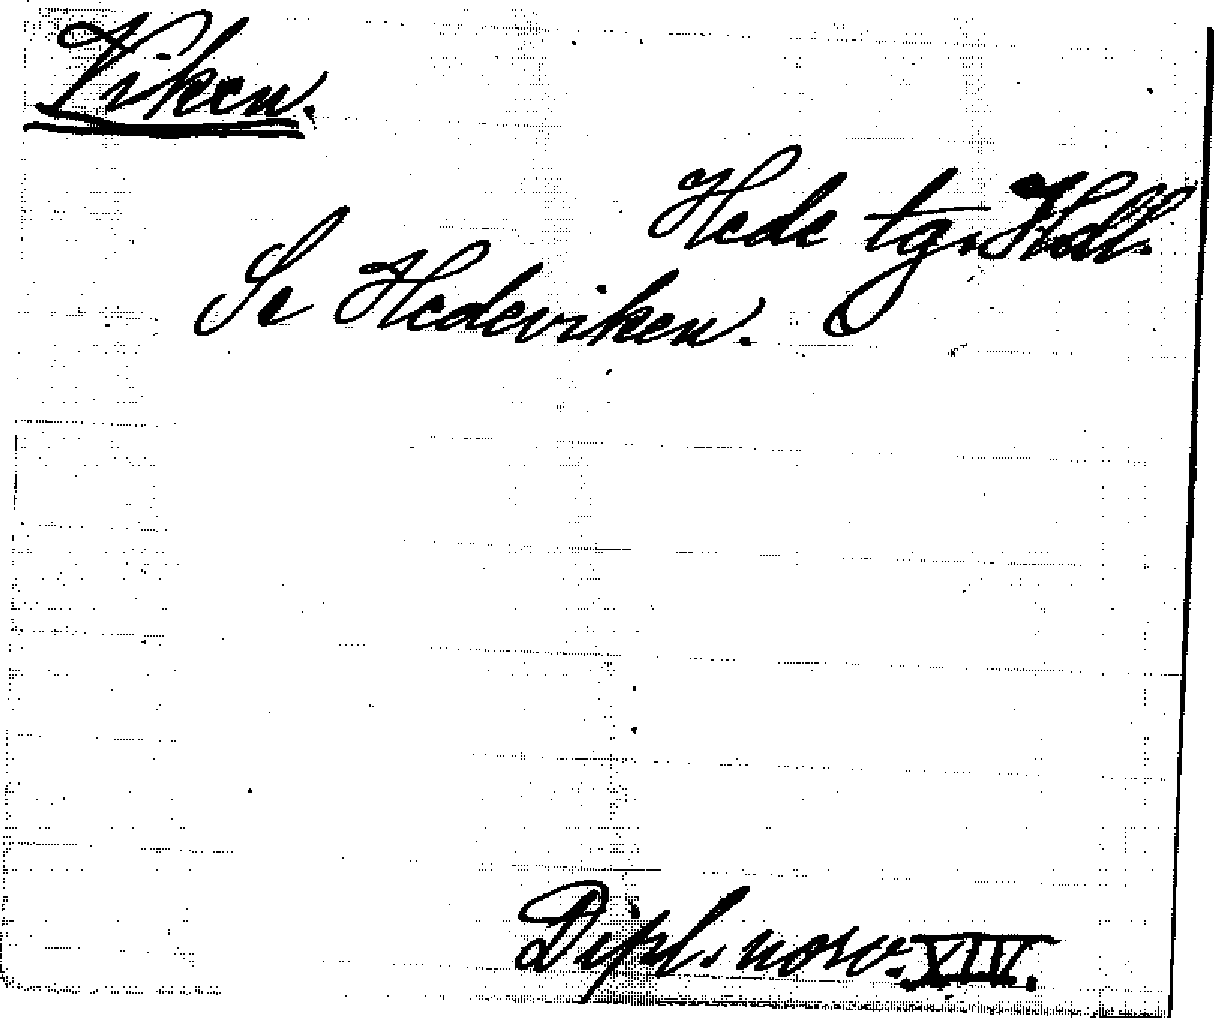 Viken.
Hede tg. Hdl.
Se Hedeviken.
Dipl. norv. XIV.